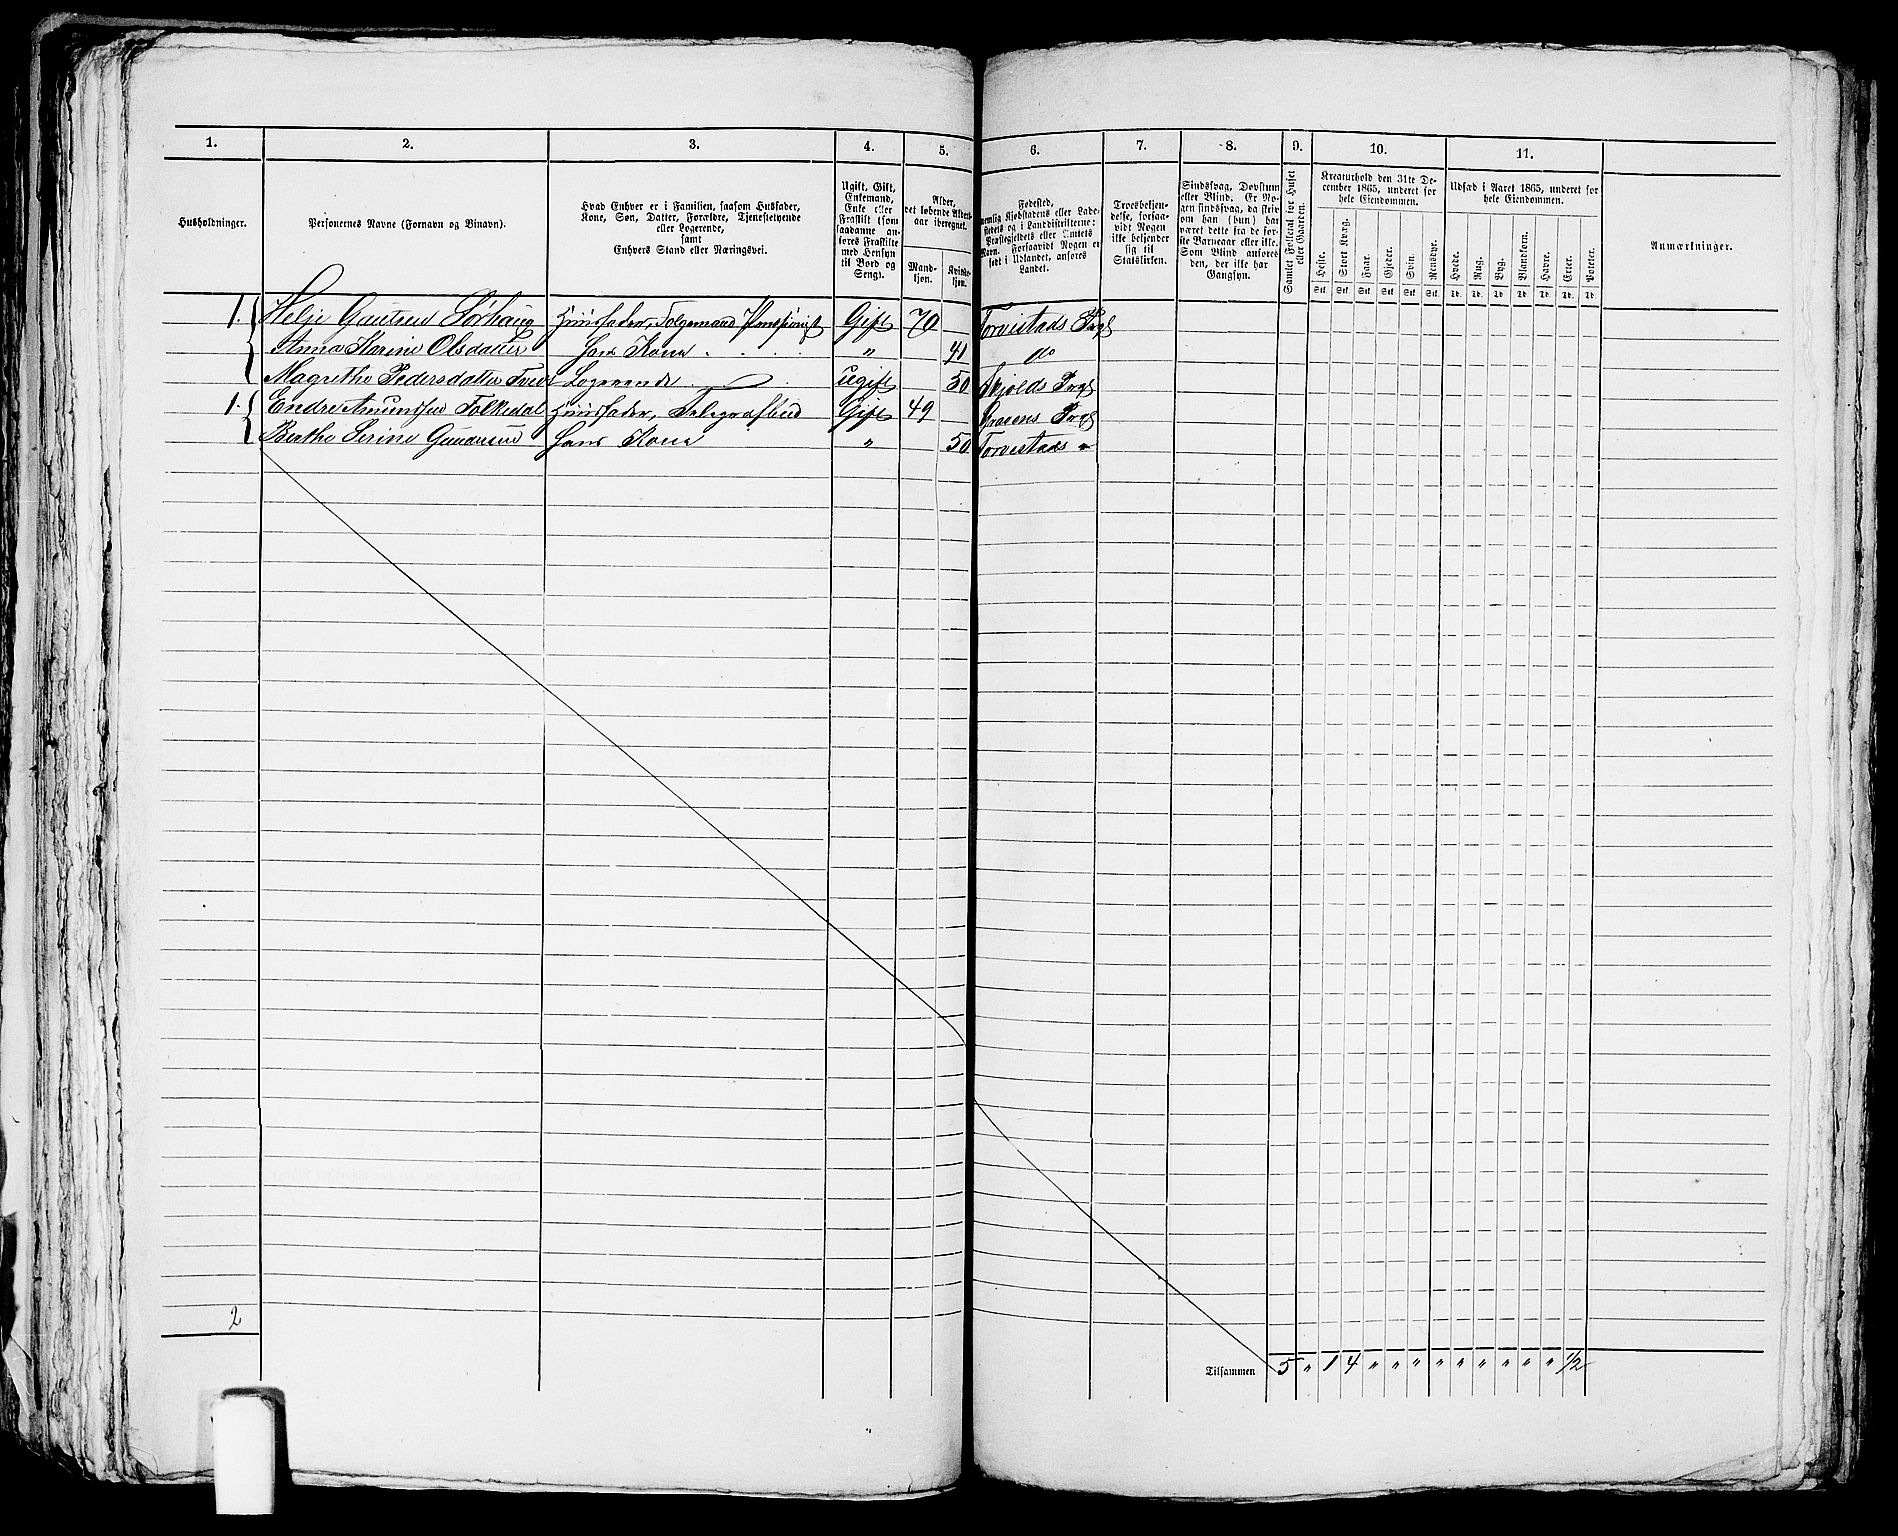 1. 2. 3. 4. 5. 6. 7. 8. 9. 10. 11.
Husholdninger.
Personernes Navne (Fornavn og Binavn).
Hvad Enhver er i Familien, saasom Husfader,
Kone, Søn, Datter, Forældre, Tjenestetyende
eller Logerende,
samt
Enhvers Stand eller Næringsvei.
Ugift, Gift,
Enkemand,
Enke eller
Fraskilt (som
saadanne an-
føres Fraskilte
med Hensyn
til Bord og
Seng).
Alder,
det løbende Alders-
aar iberegnet.
Mand-
kjøn.
Kvinde-
kjøn.
Fødested,
nemlig Kjøbstadens eller Lade-
stedets og i Landdistrikterne:
Præstegjeldets eller Amtets
Navn. Forsaavidt Nogen er
født i Udlandet, anføres
Landet.
Troesbekjen-
delse, forsaa-
vidt Nogen
ikke bekjender
sig til
Statskirken.
Sindssvag, Døvstum
eller Blind. Er No-
gen sindssvag, da skriv
om han (hun) har
været dette fra de før-
ste Barneaar eller ikke.
Som Blind anføres
den, der ikke har
Gangsyn.
Samlet Folketal for Huset
eller Gaarden.
Kreaturhold den 31te De-
cember 1865, underet for
hele Eiendommen.
Heste. Stort Kvæg. Faar. Gjeder. Svin. Rensdyr.
Stk. Stk. Stk. Stk. Stk. Stk.
Udsæd i Aaret 1865, underet for
hele Eiendommen.
Hvede. Rug. Byg. Blandkorn. Havre. Erter. Poteter.
Td. Td. Td. Td. Td. Td. Td.
Anmærkninger.
1. Helje Gautsen Sørhaug Huusfader, Følgemand Pensionist Gift 70 Torvestads Prgl
Anna Karine Olsdatter Hans Kone " 41 do
Magrethe Pedersdatter Logerende ugift 50 Skjolds Prgl
1. Endre Amundsen Folkedal Huusfader, Telegrafbud Gift 49 Gravens Prgl
Berthe Serine Hans Kone " 50 Torvestads "
2
Tilsammen 5 " 1 4 " " " " " " " " " " 1/2